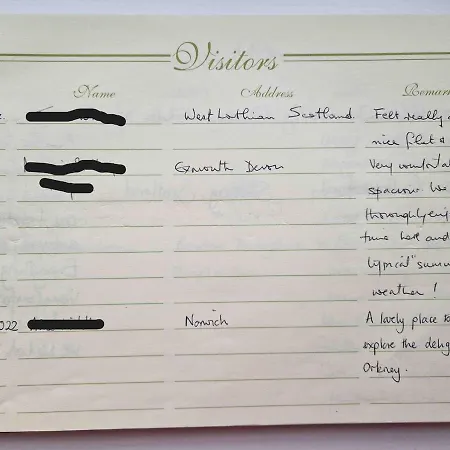 Visitors
Name Address Remar
West Lothian Scotland. Felt really
nice flat &
Exmouth Devon Very comforta
spacious. We
thoroughly enj
time here and
typical "summ
weather!
022 Norwich A lovely place to
explore the delig
Orkney.